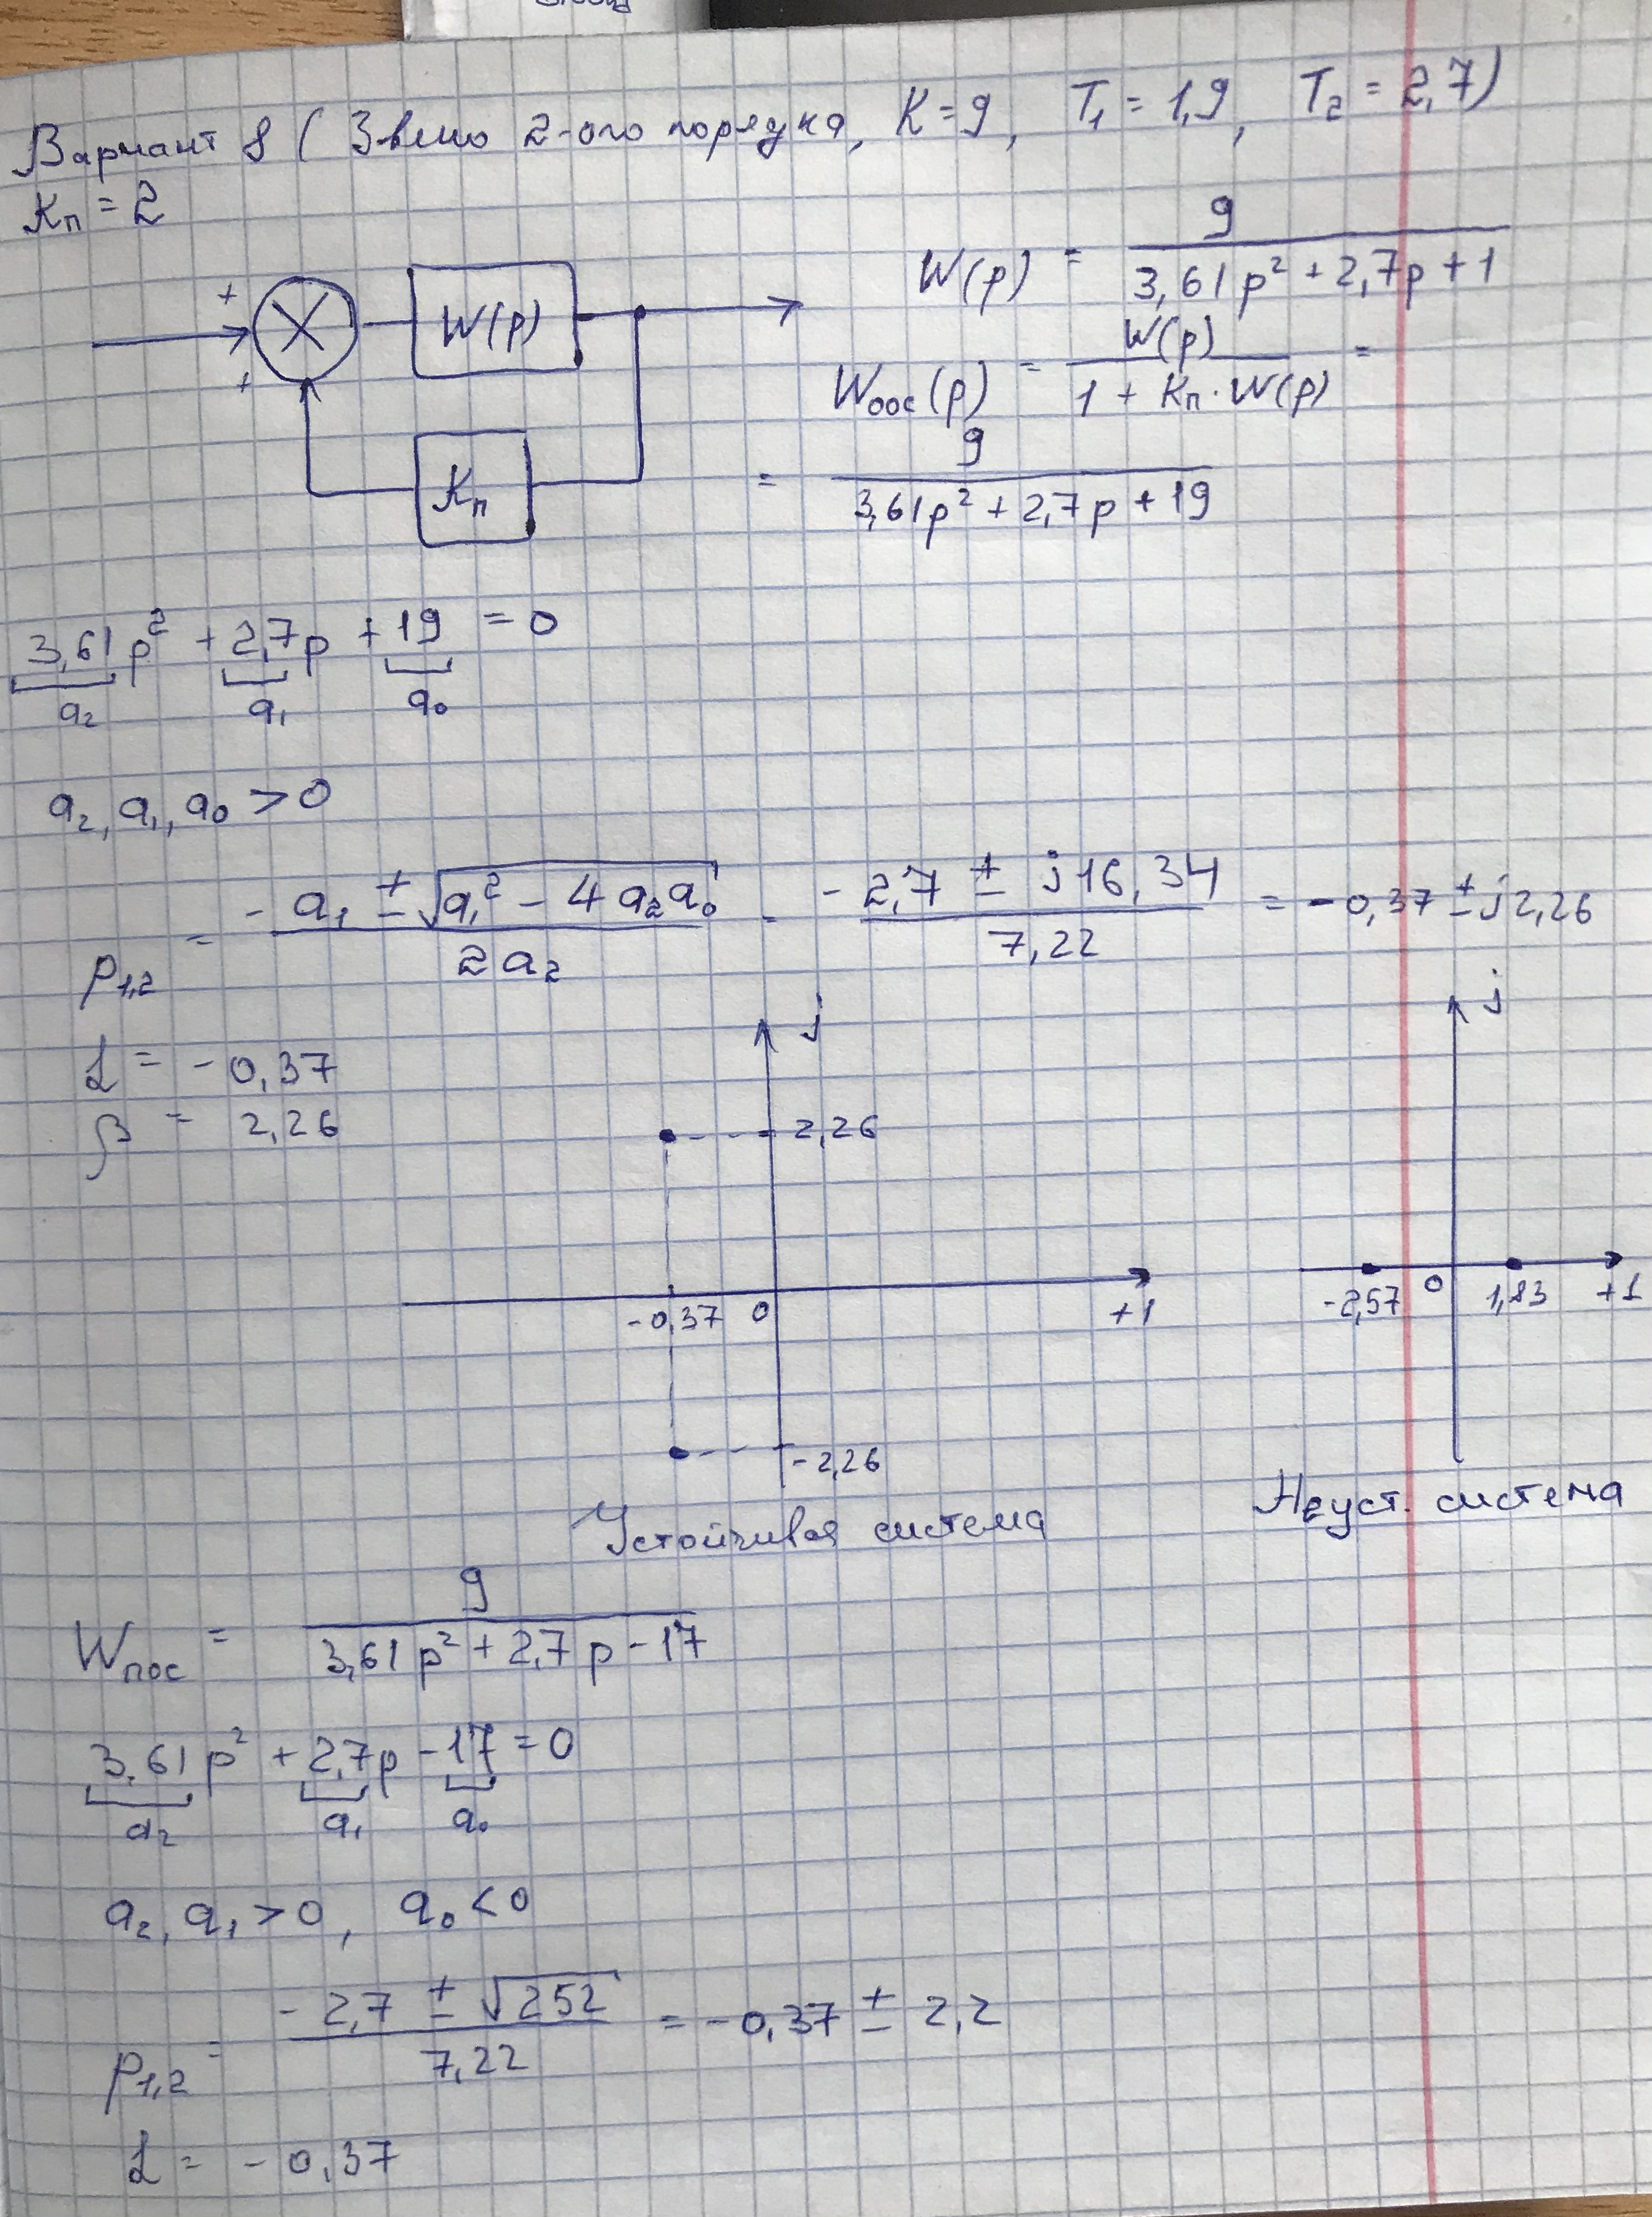 Вариант 8 ( Звено 2-ого порядка, K = 9, T₁ = 1,9, T₂ = 2,7)
Kп = 2
+
+
W(p)
Kп
W(p) = 9 / (3,61p² + 2,7p + 1)
Wоос(p) = W(p) / (1 + Kп · W(p)) =
= 9 / (3,61p² + 2,7p + 19)
3,61p² + 2,7p + 19 = 0
a₂ a₁ a₀
a₂, a₁, a₀ > 0
p₁,₂ = (- a₁ ± √(a₁² - 4a₂a₀)) / 2a₂ = (- 2,7 ± j16,34) / 7,22 = -0,37 ± j2,26
α = - 0,37
β = 2,26
j
2,26
-0,37 0 +1
-2,26
Устойчивая система
j
-2,57 0 1,83 +1
Неуст. система
Wпос = 9 / (3,61p² + 2,7p - 17)
3,61p² + 2,7p - 17 = 0
a₂ a₁ a₀
a₂, a₁ > 0, a₀ < 0
p₁,₂ = (- 2,7 ± √252) / 7,22 = -0,37 ± 2,2
α = - 0,37